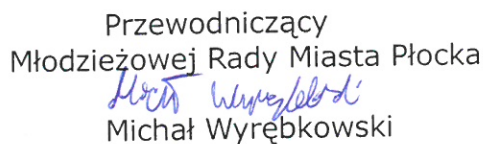 Przewodniczący
Młodzieżowej Rady Miasta Płocka
Michał Wyrębkowski
Michał Wyrębkowski